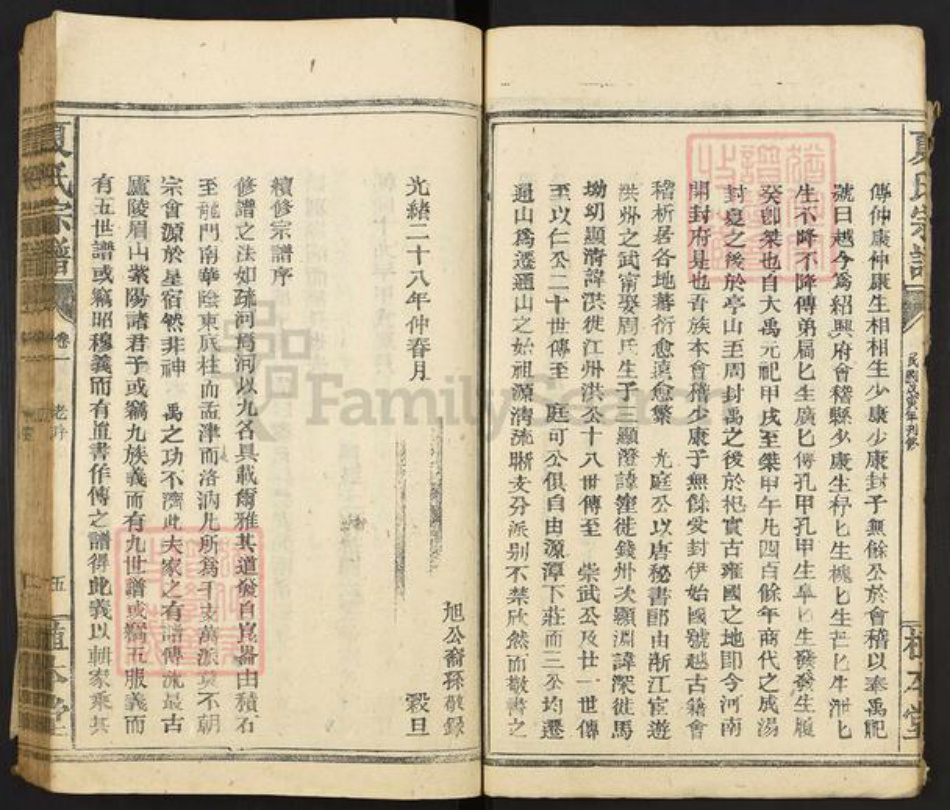 夏氏宗譜
傳仲康仲康生相相生少康少康封子無餘公於會稽以奉禹祀
號曰越今爲紹興府會稽縣少康生杼匕生槐匕生芒匕生泄匕
生不降不降傳弟扃匕生廑匕傳孔甲孔甲生皐匕生發發生履
癸卽桀也自大禹元祀甲戌至桀甲午凡四百餘年商代之成湯
封夏之後於亭山至周封禹之後於杞實古雍國之地卽今河南
開封府是也吾族本會稽少康子無餘爰封伊始國號越古籍會
稽析居各地蕃衍愈遠愈繁 光庭公以唐秘書郎由浙江宦遊
洪州之武甯娶周氏生子三顯澄諱漥徙錢州次顯淵諱深徙馬
坳幼顯清諱洪徙江州洪公十八世傳至 崇武公及廿一世傳
至以仁公二十世傳至 庭可公俱自由源潭下莊而三公均遷
通山爲遷通山之始祖源清流晰支分派別不禁欣然而敬書之
光緒二十八年仲春月 穀旦
旭公裔孫敬錄
續修宗譜序
修譜之法如疏河焉河以九名具載爾雅其道發自崑崙由積石
至龍門南華陰東底柱而孟津而洛汭凡所爲千支萬派莫不朝
宗會源於星宿然非神 禹之功不濟此夫家之有譜傳流最古
廬陵眉山紫陽諸君子或竊九族義而有九世譜或竊五服義而
有五世譜或竊昭穆義而有道書作傳之譜得此義以輯家乘其
夏氏宗譜
卷一
老序
五
FamilySearch